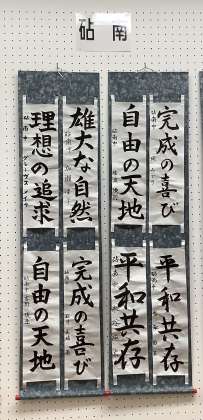 砧南
完成の喜び
自由の天地
雄大な自然
理想の追求
平和共存
平和共存
完成の喜び
自由の天地